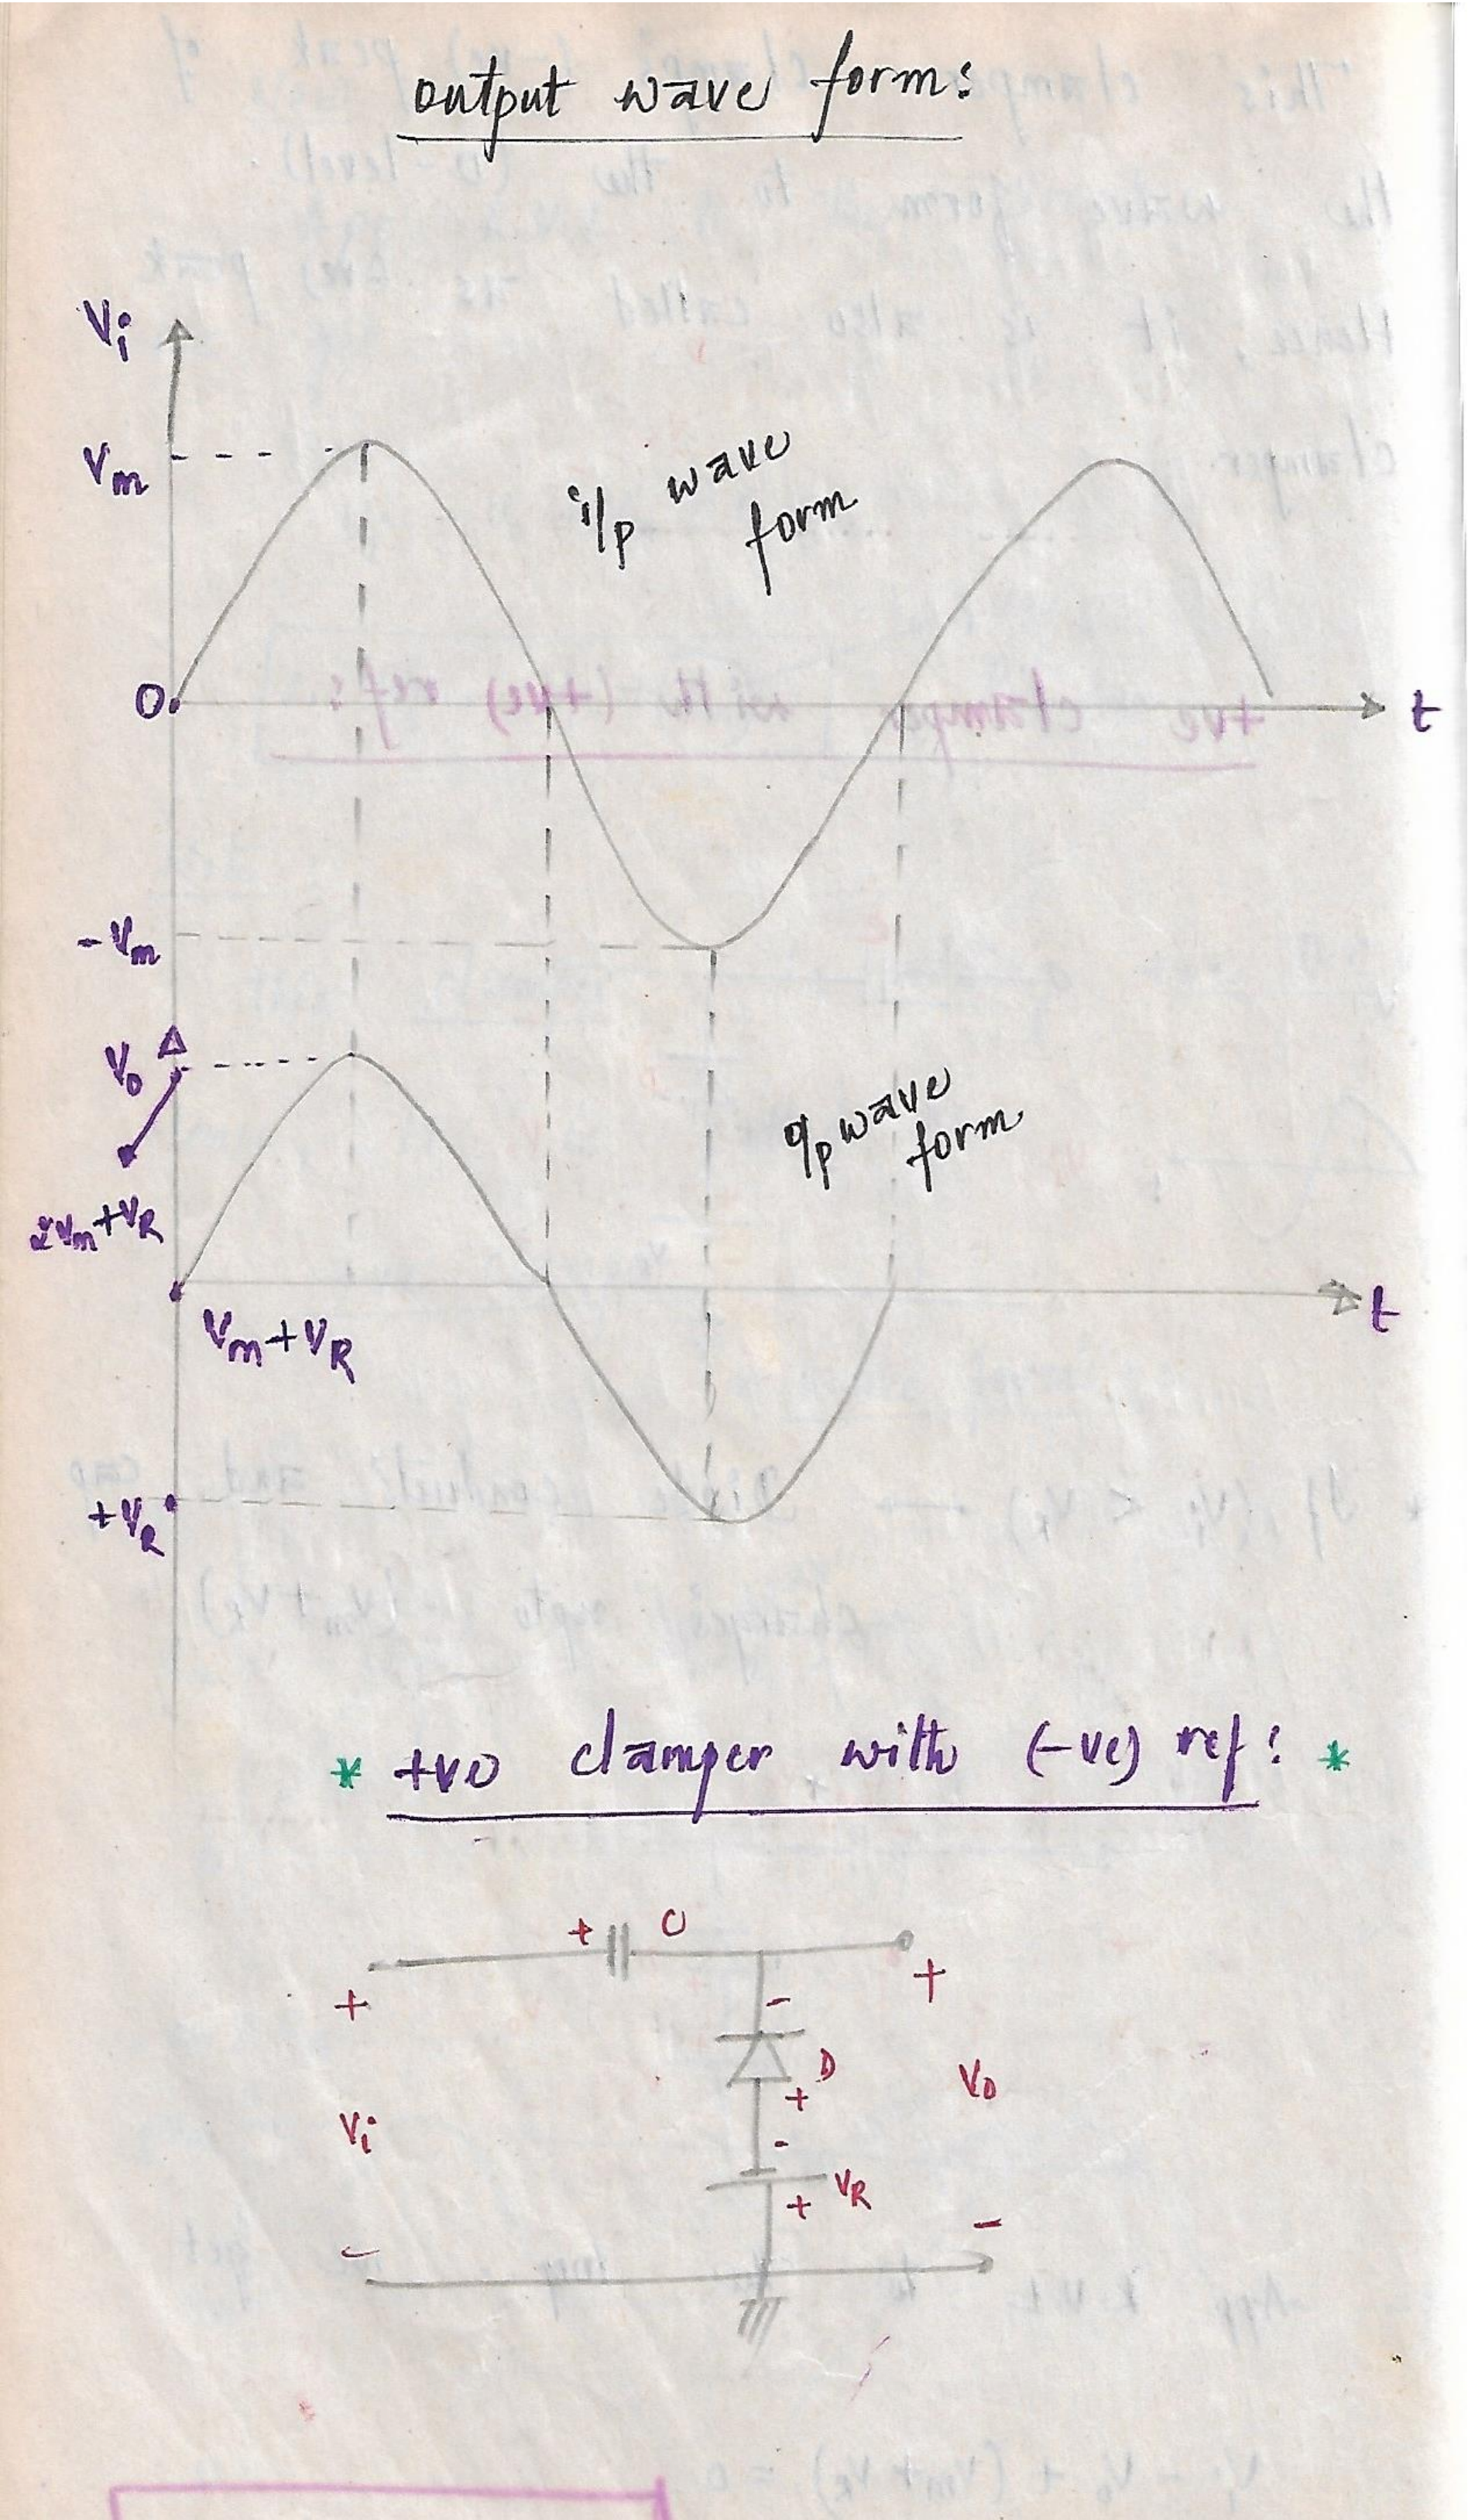 output wave form:
Vi
Vm
i/p wave
form
0
t
-Vm
Vo
o/p wave
form
2Vm+VR
Vm+VR
t
+VR
* +ve clamper with (-ve) ref: *
+ C
+ +
-
D
+
Vo
Vi
-
VR
+
-
-